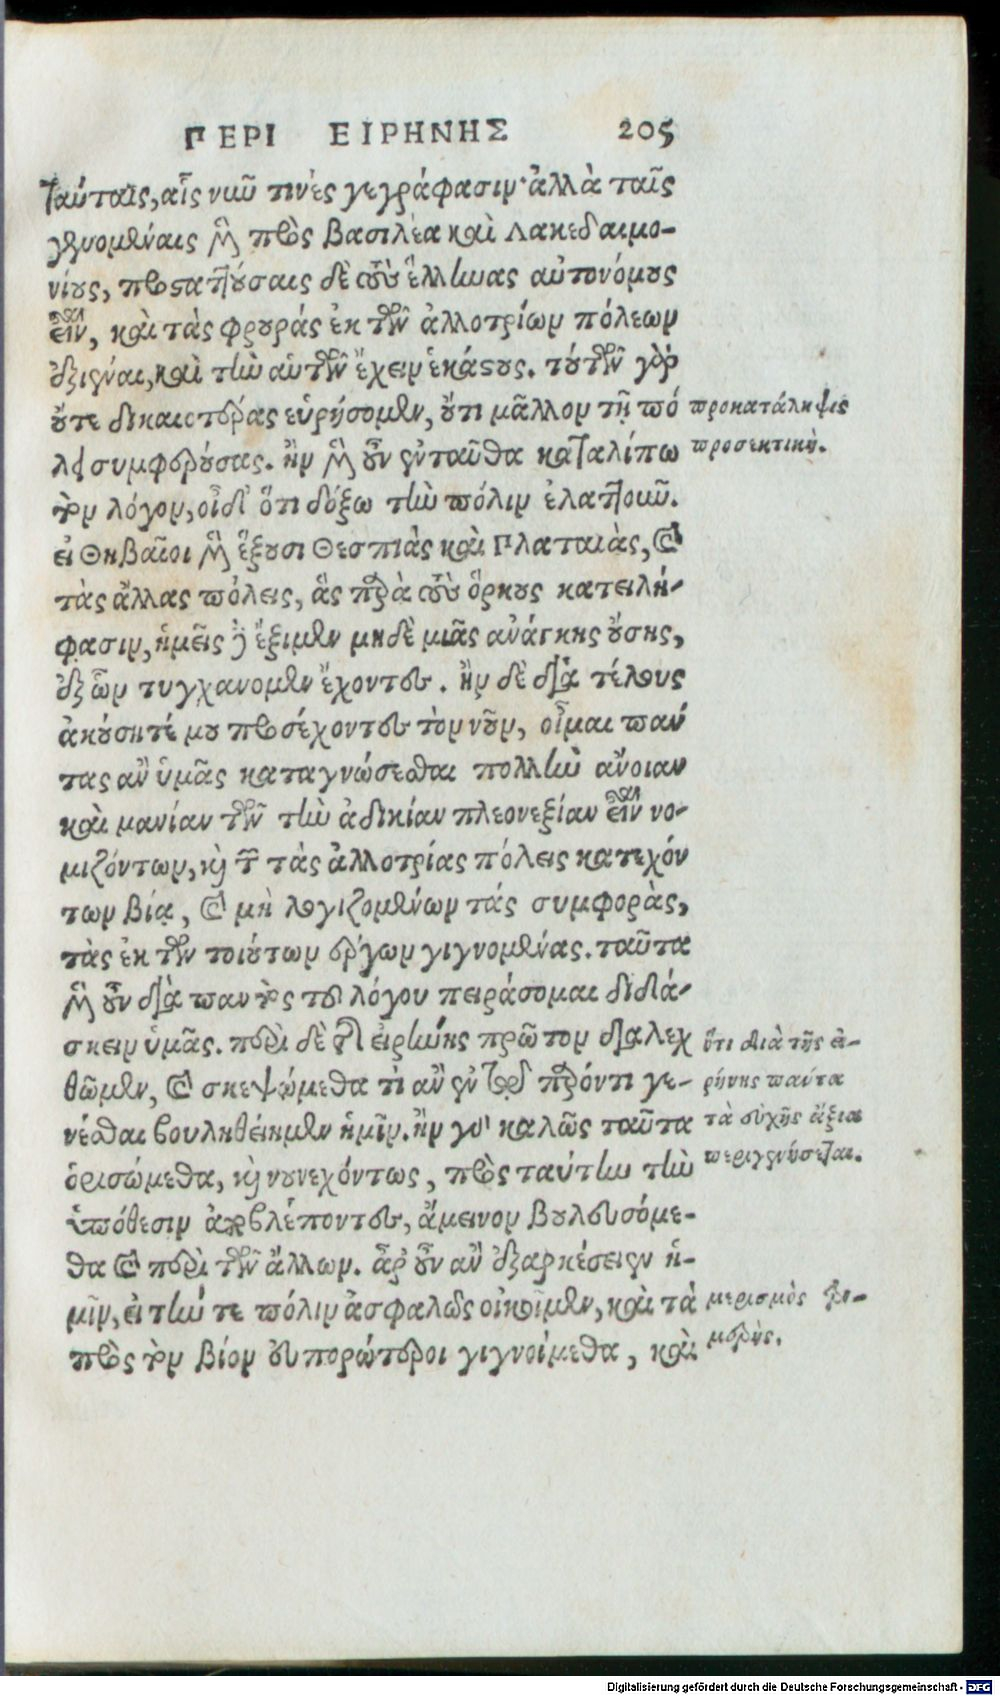 ΠΕΡΙ ΕΙΡΗΝΗΣ 205
ταύταις, αἷς νῦν τινὲς γεγράφασιν· ἀλλὰ ταῖς
γενομέναις μὲν πρὸς βασιλέα καὶ Λακεδαιμο-
νίους, προσταττούσαις δὲ τοὺς ἕλληνας αὐτονόμους
εἶναι, καὶ τὰς φρουρὰς ἐκ τῶν ἀλλοτρίων πόλεων
ἐξιέναι, καὶ τὴν αὑτῶν ἔχειν ἑκάστους. τούτων γὰρ
οὔτε δικαιοτέρας εὑρήσομεν, οὔτι μᾶλλον τῇ πό
λει συμφερούσας. ἢν μὲν οὖν ἐνταῦθα καταλίπω
τὸν λόγον, οἶδ' ὅτι δόξω τὴν πόλιν ἐλαττοῦν.
εἰ Θηβαῖοι μὲν ἕξουσι Θεσπιὰς καὶ Πλαταιὰς, καὶ
τὰς ἄλλας πόλεις, ἃς παρὰ τοὺς ὅρκους κατειλή-
φασιν, ἡμεῖς δ' ἔξιμεν μηδὲ μιᾶς ἀνάγκης οὔσης,
ἐξ ὧν τυγχάνομεν ἔχοντες. ἢν δὲ διὰ τέλους
ἀκούσητέ μου προσέχοντες τὸν νοῦν, οἶμαι παν
τας ἂν ὑμᾶς καταγνώσεσθαι πολλὴν ἄνοιαν
καὶ μανίαν τῶν τὴν ἀδικίαν πλεονεξίαν εἶναι νο-
μιζόντων, καὶ τῶν τὰς ἀλλοτρίας πόλεις κατεχόν
των βίᾳ, καὶ μὴ λογιζομένων τάς συμφορὰς,
τὰς ἐκ τῶν τοιούτων ἔργων γιγνομένας. ταῦτα
μὲν οὖν διὰ παντὸς τοῦ λόγου πειράσομαι διδά-
σκειν ὑμᾶς. περὶ δὲ τῆς εἰρήνης πρῶτον διαλεχ
θῶμεν, καὶ σκεψώμεθα τί ἂν ἐν τῷ παρόντι γε-
νέσθαι βουληθείημεν ἡμῖν. ἢν γὰρ καλῶς ταῦτα
ὁρισώμεθα, καὶ νουνεχόντως, πρὸς ταύτην τὴν
ὑπόθεσιν ἀποβλέποντες, ἄμεινον βουλευσόμε-
θα καὶ περὶ τῶν ἄλλων. ἆρ' οὖν ἂν ἐξαρκέσειεν ἡ-
μῖν, εἰ τήν τε πόλιν ἀσφαλῶς οἰκοῖμεν, καὶ τὰ
πρὸς τὸν βίον εὐπορώτεροι γιγνοίμεθα, καὶ
προκατάληψις
προσεκτική.
ὅτι διὰ τῆς εἰ-
ρήνης πάντα
τὰ εὐχῆς ἄξια
περιγενήσεται.
μερισμὸς
μερής.
Digitalisierung gefördert durch die Deutsche Forschungsgemeinschaft - DFG